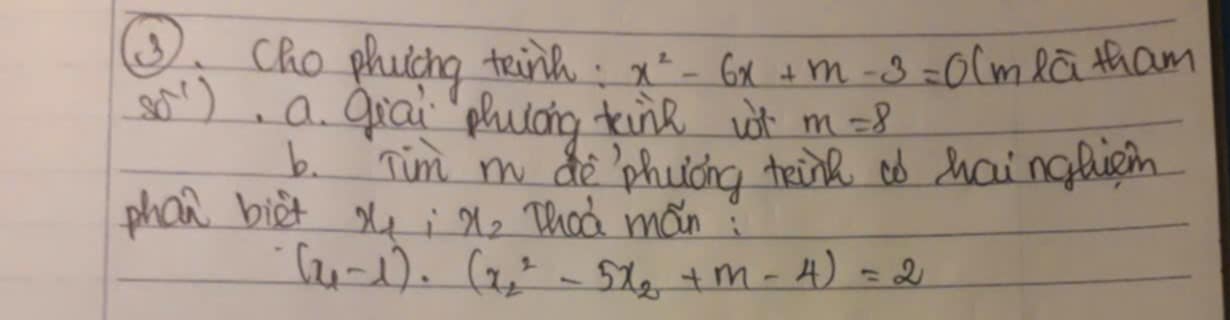 ③. Cho phương trình: x² - 6x + m - 3 = 0 (m là tham
số). a. Giải phương trình với m = 8
b. Tìm m để phương trình có hai nghiệm
phân biệt x₁; x₂ thoả mãn:
(x₁ - 1). (x₂² - 5x₂ + m - 4) = 2